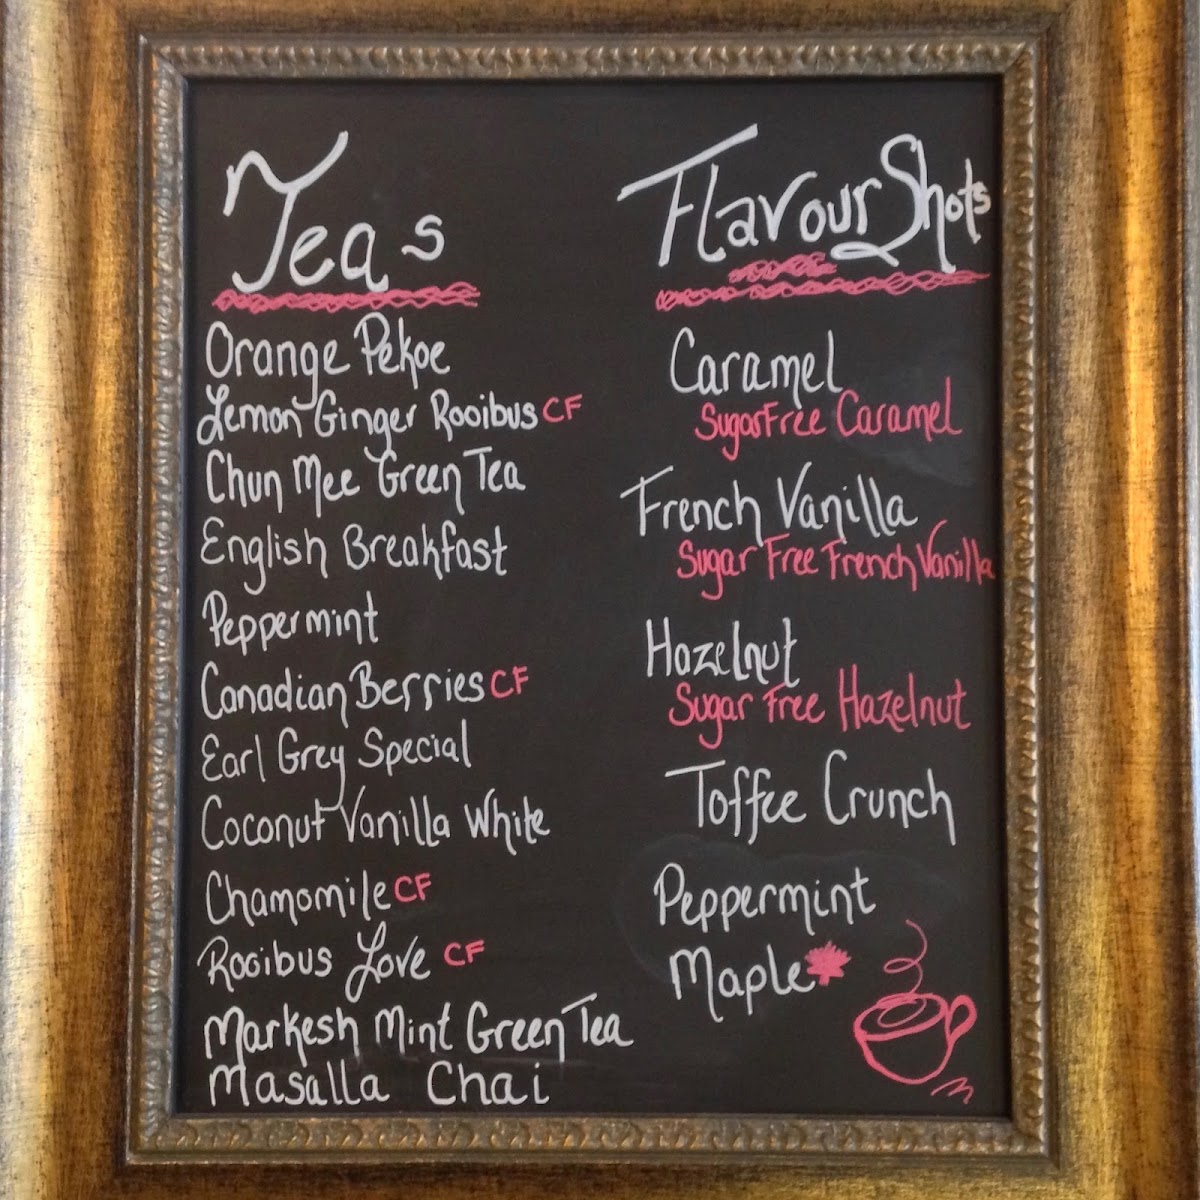 Teas
Orange Pekoe
Lemon Ginger Rooibus CF
Chun Mee Green Tea
English Breakfast
Peppermint
Canadian Berries CF
Earl Grey Special
Coconut Vanilla White
Chamomile CF
Rooibus Love CF
Markesh Mint Green Tea
Masalla Chai
Flavour Shots
Caramel
Sugar Free Caramel
French Vanilla
Sugar Free French Vanilla
Hazelnut
Sugar Free Hazelnut
Toffee Crunch
Peppermint
Maple